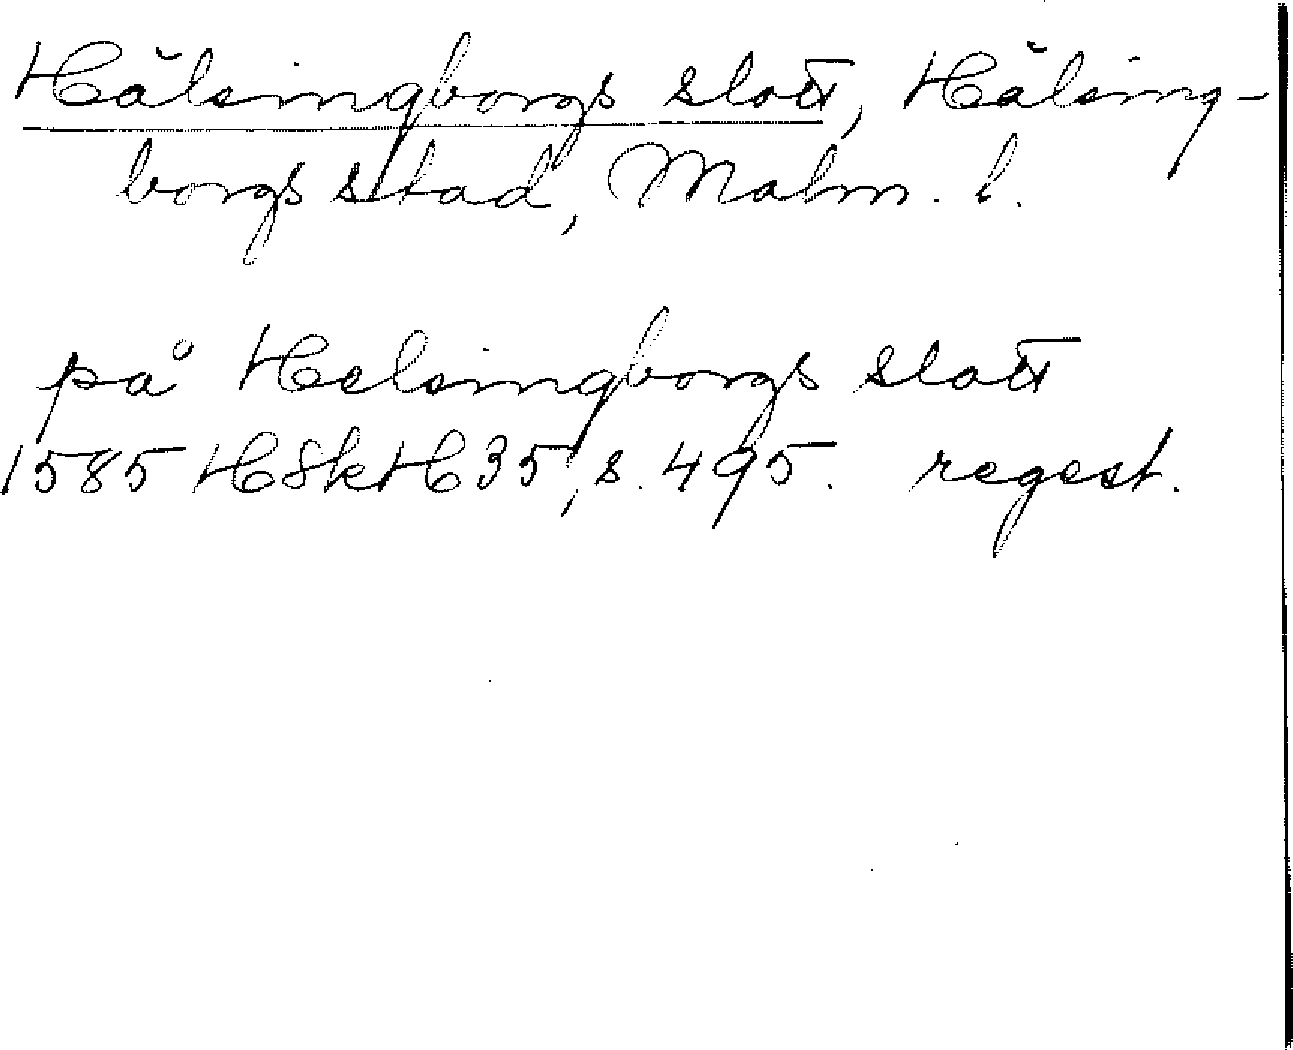 Hälsingborgs slott, Hälsing-
borgs stad, Malm. l.
på Helsingborgs slott
1585 HSkH 35, s. 495. regest.